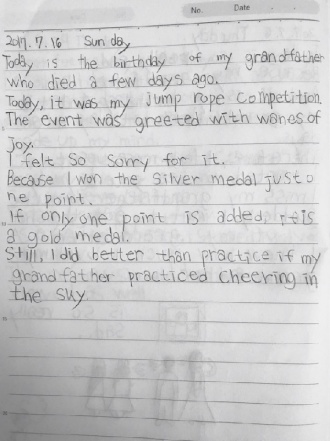 No.
Date
2017. 7. 16 Sunday
Today is the birthday of my grandfather
who died a few days ago.
Today, it was my jump rope competition.
The event was greeted with wanes of
joy.
I felt so sorry for it.
Because I won the silver medal just o
ne point.
If only one point is added, it is
a gold medal.
Still, I did better than practice if my
grandfather practiced cheering in
the sky